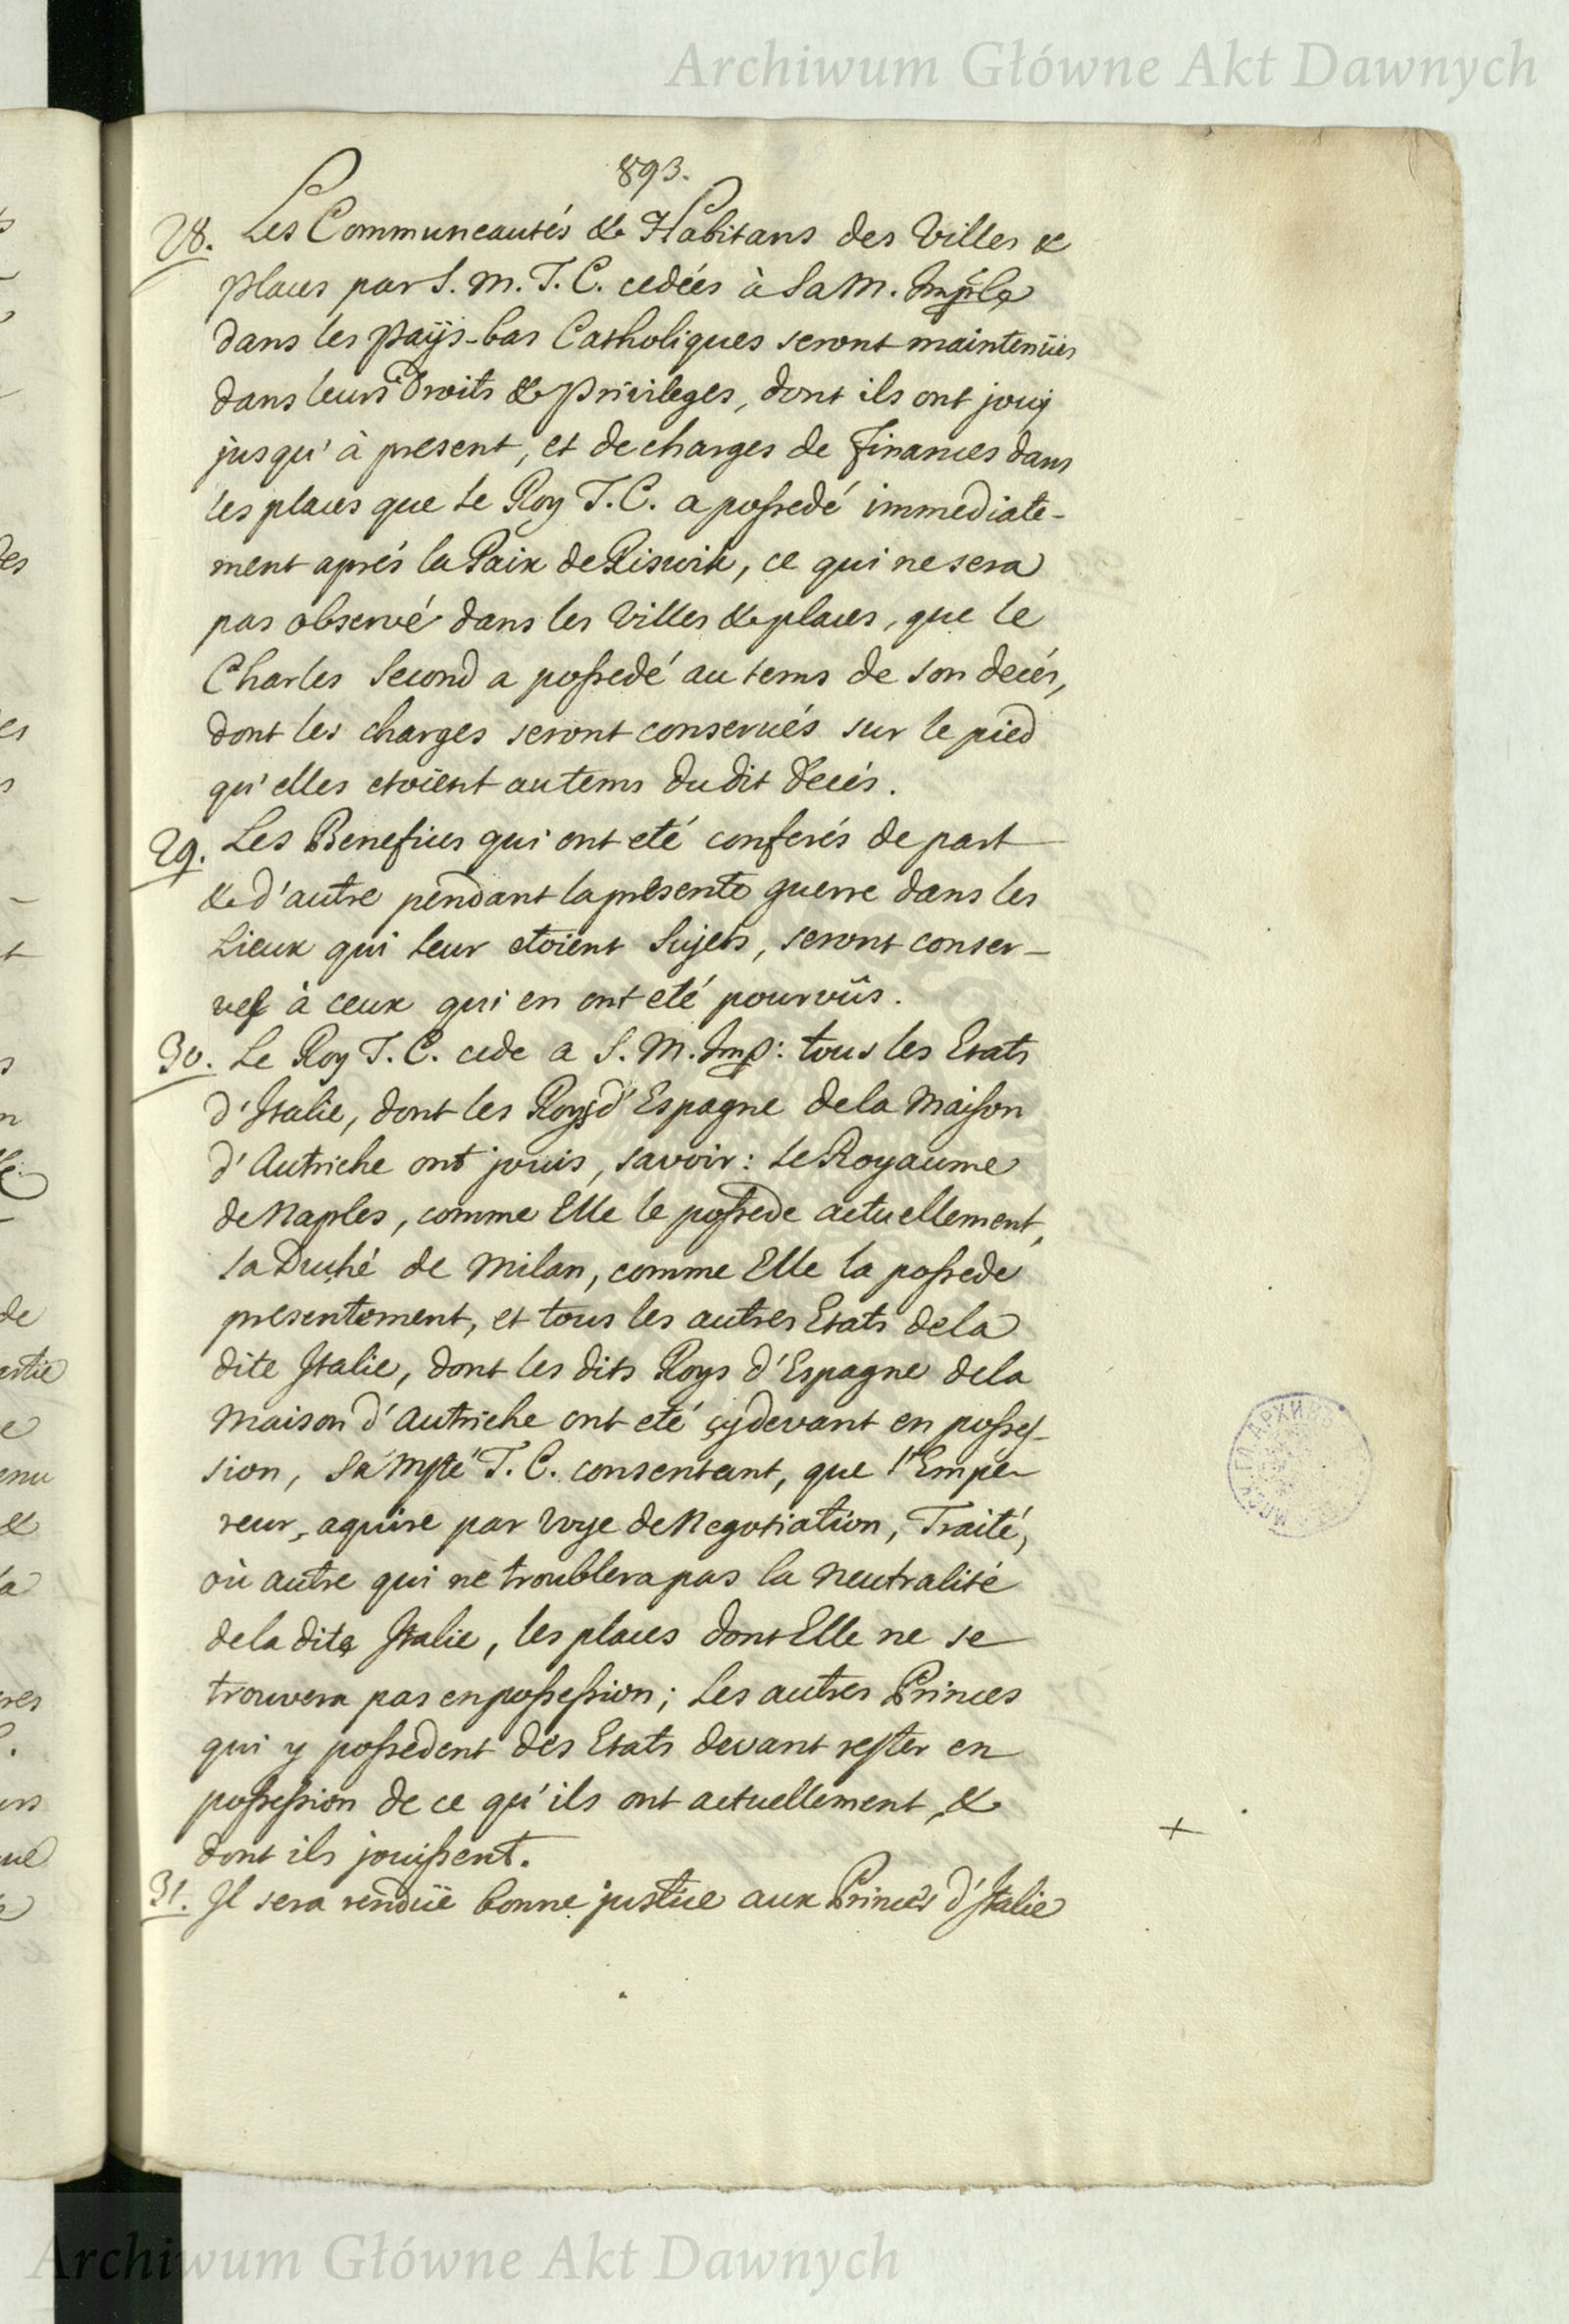 Archiwum Główne Akt Dawnych
893.
28. Les Communeautés & Habitans des Villes &
places par S. M. T. C. cedées à Sa M. Imple
dans les païs-bas Catholiques seront maintenües
dans leurs Droits & privileges, dont ils ont jouy
jusqu'à present, et de charges de finances dans
les places que le Roy T. C. a possedé immediate-
ment aprés la Paix de Riswik, ce qui ne sera
pas observé dans les Villes & places, que le
Charles Second a possedé au tems de son decés,
dont les charges seront conservés sur le pied
qu'elles etoient au tems du dit decés.
29. Les Benefices qui ont eté conferés de part
& d'autre pendant la presente guerre dans les
Lieux qui leur etoient Sujets, seront conser-
vés à ceux qui en ont eté pourvûs.
30. Le Roy T. C. cede a S. M. Imp: tous les Etats
d'Italie, dont les Roys d'Espagne de la Maison
d'Autriche ont jouis, savoir: le Royaume
de Naples, comme Elle le possede actuellement,
la Duché de Milan, comme Elle la possede
presentement, et tous les autres Etats de la
dite Italie, dont les dits Roys d'Espagne de la
Maison d'Autriche ont eté çydevant en posses-
sion, Sa Mjsté T. C. consentant, que l'Empe-
reur, aquire par voye de Negotiation, Traité,
où autre qui ne troublera pas la Neutralité
de la dite Italie, les places dont Elle ne se
trouvera pas en possession; Les autres Princes
qui y possedent des Etats devant rester en
possession de ce qu'ils ont actuellement, &
dont ils jouissent.
31. Il sera rendüe bonne justice aux Princes d'Italie
Archiwum Główne Akt Dawnych